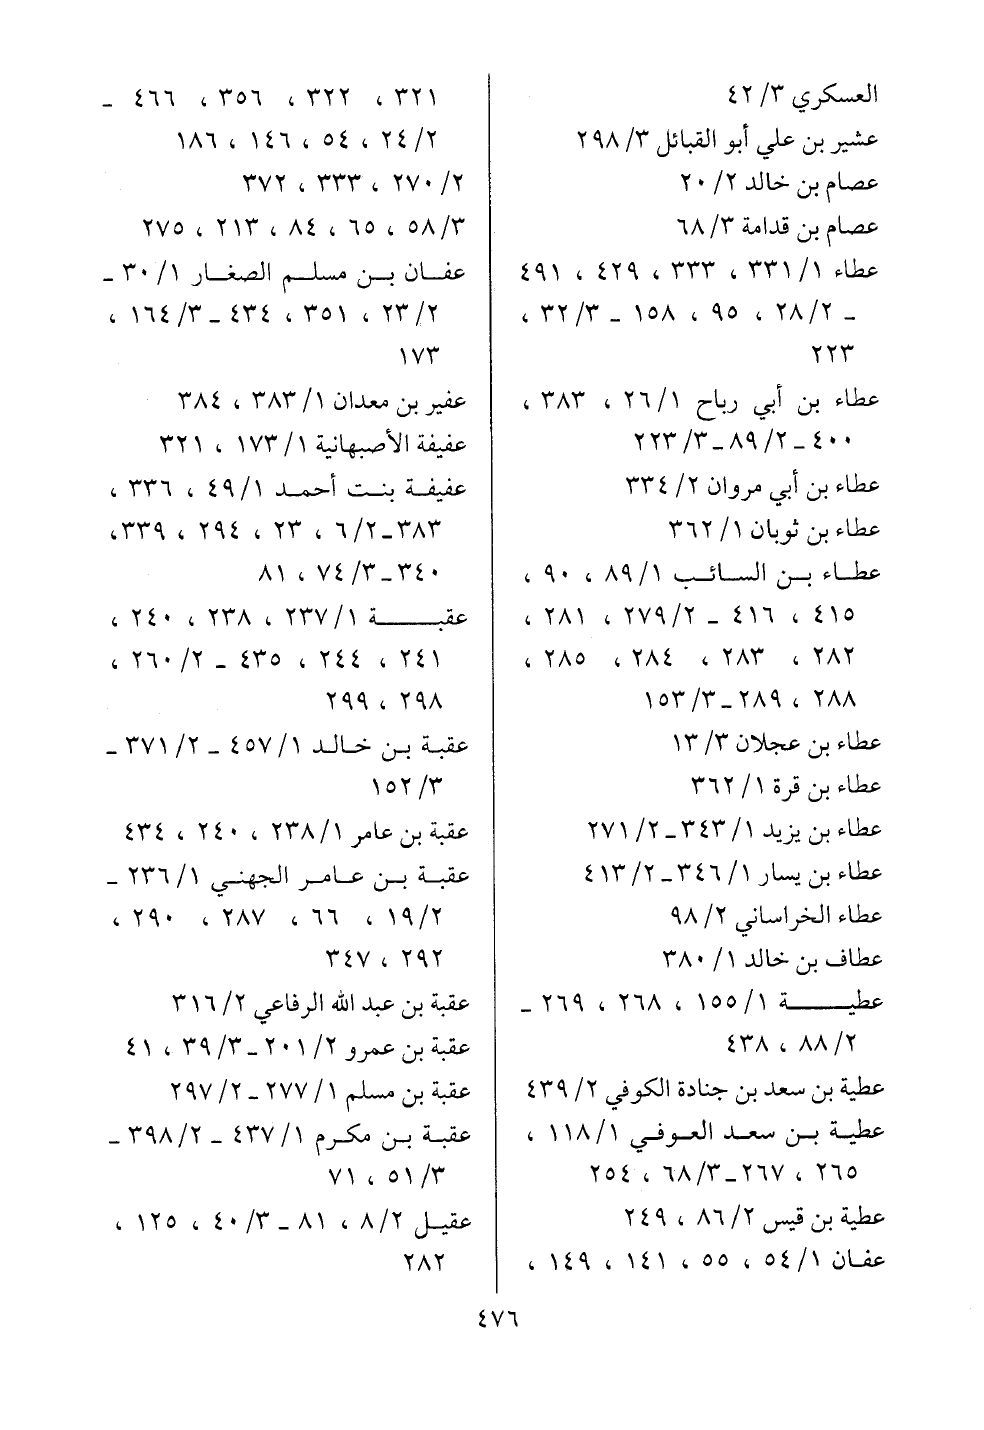 العسكري ٣/ ٤٢
عشير بن علي أبو القبائل ٣/ ٢٩٨
عصام بن خالد ٢/ ٢٠
عصام بن قدامة ٣/ ٦٨
عطاء ١/ ٣٣١ ، ٣٣٣ ، ٤٢٩ ، ٤٩١
ـ ٢/ ٢٨ ، ٩٥ ، ١٥٨ ـ ٣/ ٣٢ ،
٢٢٣
عطاء بن أبي رباح ١/ ٢٦ ، ٣٨٣ ،
٤٠٠ ـ ٢/ ٨٩ ـ ٣/ ٢٢٣
عطاء بن أبي مروان ٢/ ٣٣٤
عطاء بن ثوبان ١/ ٣٦٢
عطاء بن السائب ١/ ٨٩ ، ٩٠ ،
٤١٥ ، ٤١٦ ـ ٢/ ٢٧٩ ، ٢٨١ ،
٢٨٢ ، ٢٨٣ ، ٢٨٤ ، ٢٨٥ ،
٢٨٨ ، ٢٨٩ ـ ٣/ ١٥٣
عطاء بن عجلان ٣/ ١٣
عطاء بن قرة ١/ ٣٦٢
عطاء بن يزيد ١/ ٣٤٣ ـ ٢/ ٢٧١
عطاء بن يسار ١/ ٣٤٦ ـ ٢/ ٤١٣
عطاء الخراساني ٢/ ٩٨
عطاف بن خالد ١/ ٣٨٠
عطيــــــة ١/ ١٥٥ ، ٢٦٨ ، ٢٦٩ ـ
٢/ ٨٨ ، ٤٣٨
عطية بن سعد بن جنادة الكوفي ٢/ ٤٣٩
عطيـة بـن سعـد العـوفـي ١/ ١١٨ ،
٢٦٥ ، ٢٦٧ ـ ٣/ ٦٨ ، ٢٥٤
عطية بن قيس ٢/ ٨٦ ، ٢٤٩
عفـان ١/ ٥٤ ، ٥٥ ، ١٤١ ، ١٤٩ ،
٣٢١ ، ٣٢٢ ، ٣٥٦ ، ٤٦٦ ـ
٢/ ٢٤ ، ٥٤ ، ١٤٦ ، ١٨٦
٢/ ٢٧٠ ، ٣٣٣ ، ٣٧٢
٣/ ٥٨ ، ٦٥ ، ٨٤ ، ٢١٣ ، ٢٧٥
عفـان بـن مسلـم الصغـار ١/ ٣٠ ـ
٢/ ٢٣ ، ٣٥١ ، ٤٣٤ ـ ٣/ ١٦٤ ،
١٧٣
عفير بن معدان ١/ ٣٨٣ ، ٣٨٤
عفيفة الأصبهانية ١/ ١٧٣ ، ٣٢١
عفيفـة بنـت أحمـد ١/ ٤٩ ، ٣٣٦ ،
٣٨٣ ـ ٢/ ٦ ، ٢٣ ، ٢٩٤ ، ٣٣٩،
٣٤٠ ـ ٣/ ٧٤ ، ٨١
عقبــــــة ١/ ٢٣٧ ، ٢٣٨ ، ٢٤٠ ،
٢٤١ ، ٢٤٤ ، ٤٣٥ ـ ٢/ ٢٦٠ ،
٢٩٨ ، ٢٩٩
عقبة بـن خـالـد ١/ ٤٥٧ ـ ٢/ ٣٧١ ـ
٣/ ١٥٢
عقبة بن عامر ١/ ٢٣٨ ، ٢٤٠ ، ٤٣٤
عقبـة بـن عـامـر الجهنـي ١/ ٢٣٦ ـ
٢/ ١٩ ، ٦٦ ، ٢٨٧ ، ٢٩٠ ،
٢٩٢ ، ٣٤٧
عقبة بن عبد الله الرفاعي ٢/ ٣١٦
عقبة بن عمرو ٢/ ٢٠١ ـ ٣/ ٣٩ ، ٤١
عقبة بن مسلم ١/ ٢٧٧ ـ ٢/ ٢٩٧
عقبـة بـن مكـرم ١/ ٤٣٧ ـ ٢/ ٣٩٨ ـ
٣/ ٥١ ، ٧١
عقيـل ٢/ ٨ ، ٨١ ـ ٣/ ٤٠ ، ١٢٥ ،
٢٨٢
٤٧٦